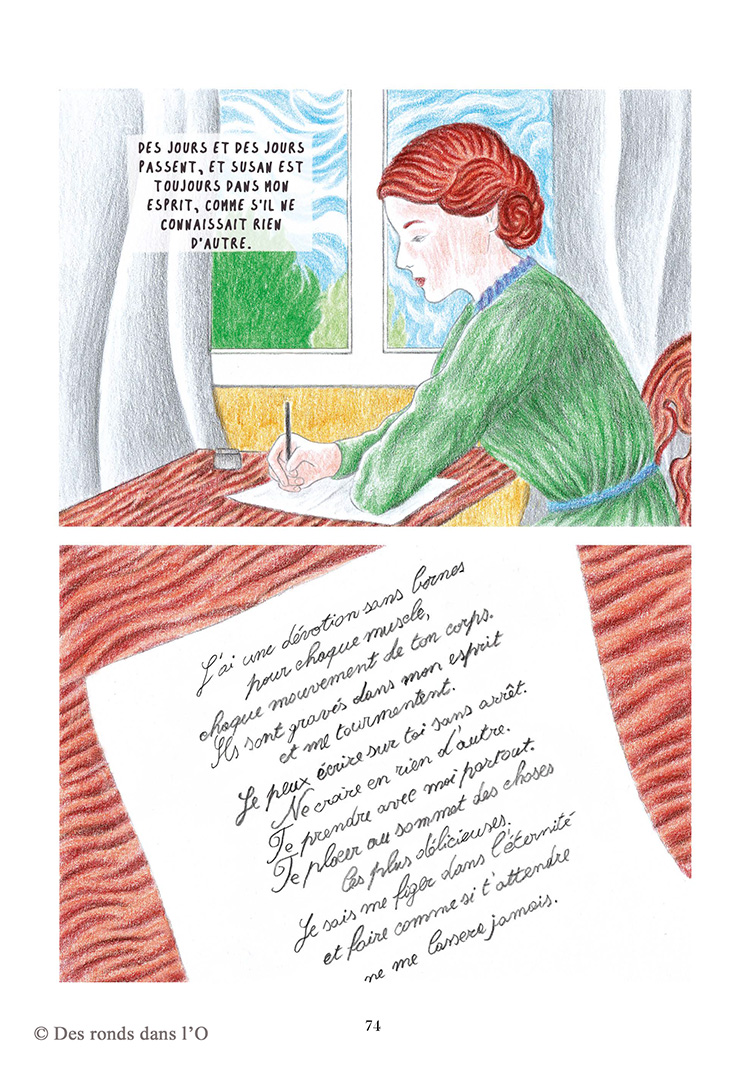 DES JOURS ET DES JOURS
PASSENT, ET SUSAN EST
TOUJOURS DANS MON
ESPRIT, COMME S'IL NE
CONNAISSAIT RIEN
D'AUTRE.
J'ai une dévotion sans bornes
pour chaque muscle,
chaque mouvement de ton corps.
Ils sont gravés dans mon esprit
et me tourmentent.
Je peux écrire sur toi sans arrêt.
Ne croire en rien d'autre.
Te prendre avec moi partout.
Te placer au sommet des choses
les plus délicieuses.
Je sais me figer dans l'éternité
et faire comme si t'attendre
ne me lassera jamais.
© Des ronds dans l'O
74